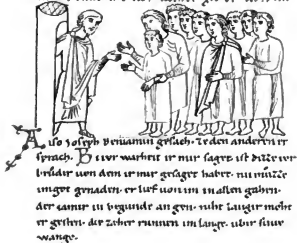 Also Joseph Beniamin gesach. ze den anderen er
sprach. B i iwer warheit ir mir saget ist dizze iwer
brůder von dem ir mir gesaget habet. nu muzze
im got genaden. er lief von im in allen gahen.
der iamir in begunde an gen. niht langir moht
er gesten. die zaher runnen im lange. ubir siniu
wange.